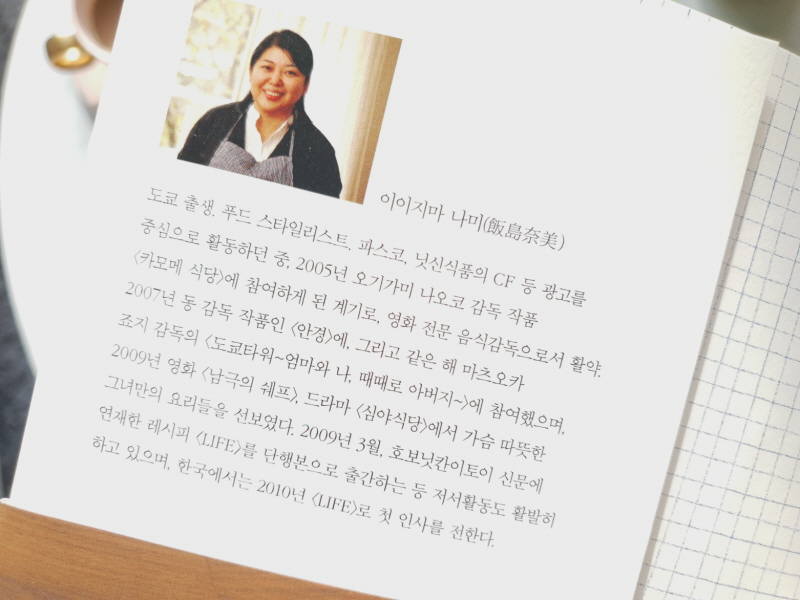 이이지마 나미(飯島奈美)
도쿄 출생. 푸드 스타일리스트. 파스코, 닛신식품의 CF 등 광고를
중심으로 활동하던 중, 2005년 오기가미 나오코 감독 작품
〈카모메 식당〉에 참여하게 된 계기로, 영화 전문 음식감독으로서 활약.
2007년 동 감독 작품인 〈안경〉에, 그리고 같은 해 마츠오카
죠지 감독의 〈도쿄타워~엄마와 나, 때때로 아버지~〉에 참여했으며,
2009년 영화 〈남극의 쉐프〉, 드라마 〈심야식당〉에서 가슴 따뜻한
그녀만의 요리들을 선보였다. 2009년 3월, 호보닛칸이토이 신문에
연재한 레시피 〈LIFE〉를 단행본으로 출간하는 등 저서활동도 활발히
하고 있으며, 한국에서는 2010년 〈LIFE〉로 첫 인사를 전한다.